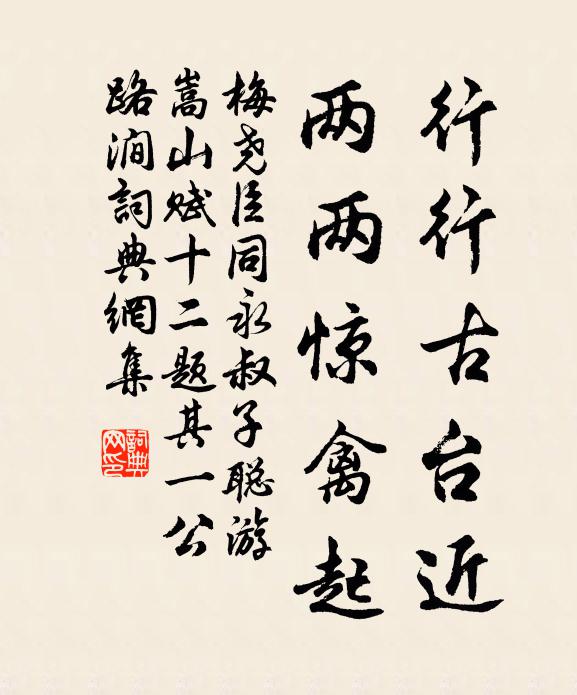 行行古台近
两两惊禽起
梅尧臣同永叔子聪游
嵩山赋十二题其一公
路涧詞典網集
詞典
网印